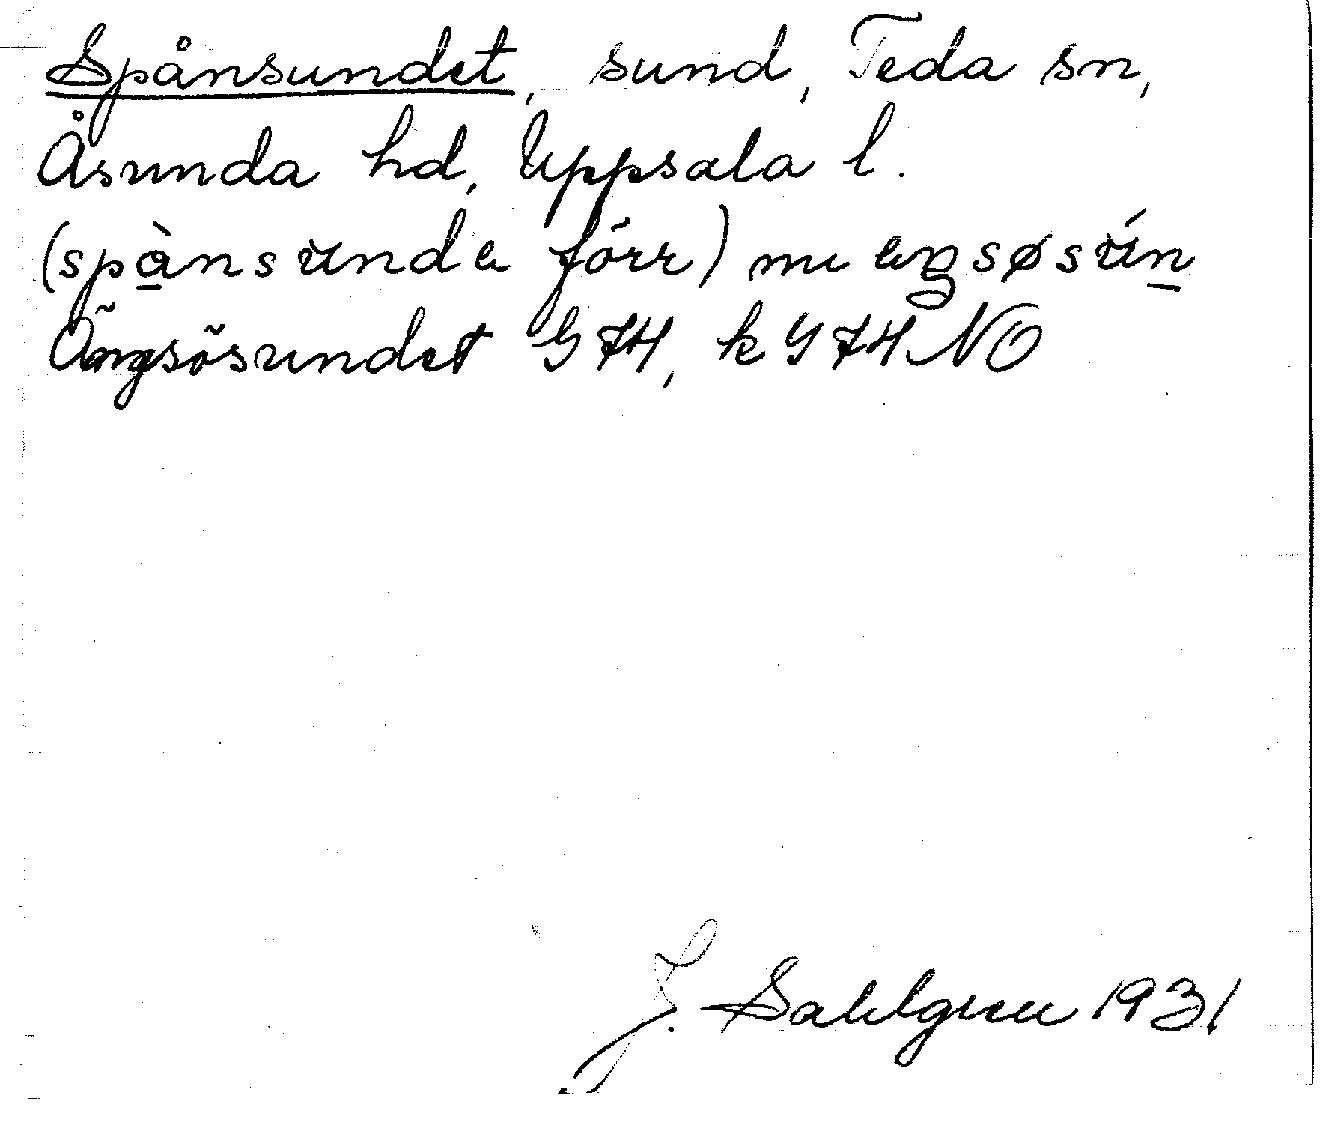 Spånsundet, sund, Teda sn,
Åsunda hd, Uppsala l.
(spànsunda förr) nu ängsøsún
Ängsösundet G 74, k G 74 NO
J. Sahlgren 1931